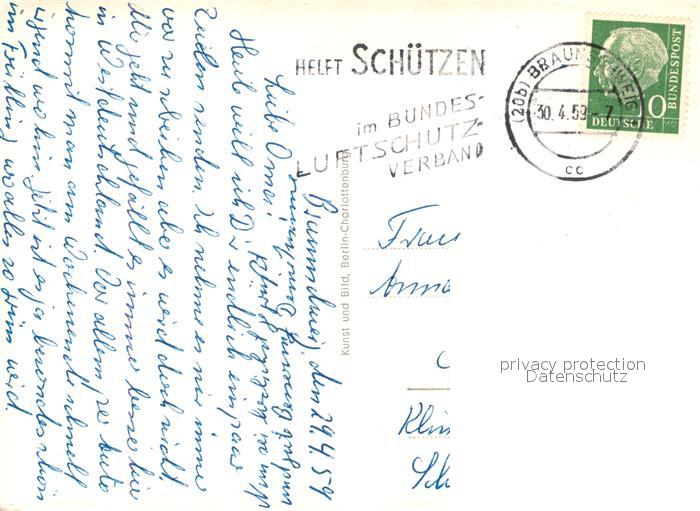 HELFT SCHÜTZEN
im BUNDES-
LUFTSCHUTZ-
VERBAND
(20b) BRAUNSCHWEIG
30.4.59.-7
cc
DEUTSCHE BUNDESPOST
10
Kunst und Bild, Berlin-Charlottenburg
Braunschweig, den 29.4.59
Liebe Oma!
Heute will ich Dir endlich ein paar
Zeilen senden. Ich nehme es mir immer
vor zu schreiben aber es wird doch nicht.
Mir geht und gefällt es immer besser hier
in Westdeutschland. Vor allem per Auto
kommt man am Wochenende schnell
irgend wo hin. Jetzt ist es ja besonders schön
im Frühling wo alles so grün wird.
Frau
Anna
privacy protection
Datenschutz